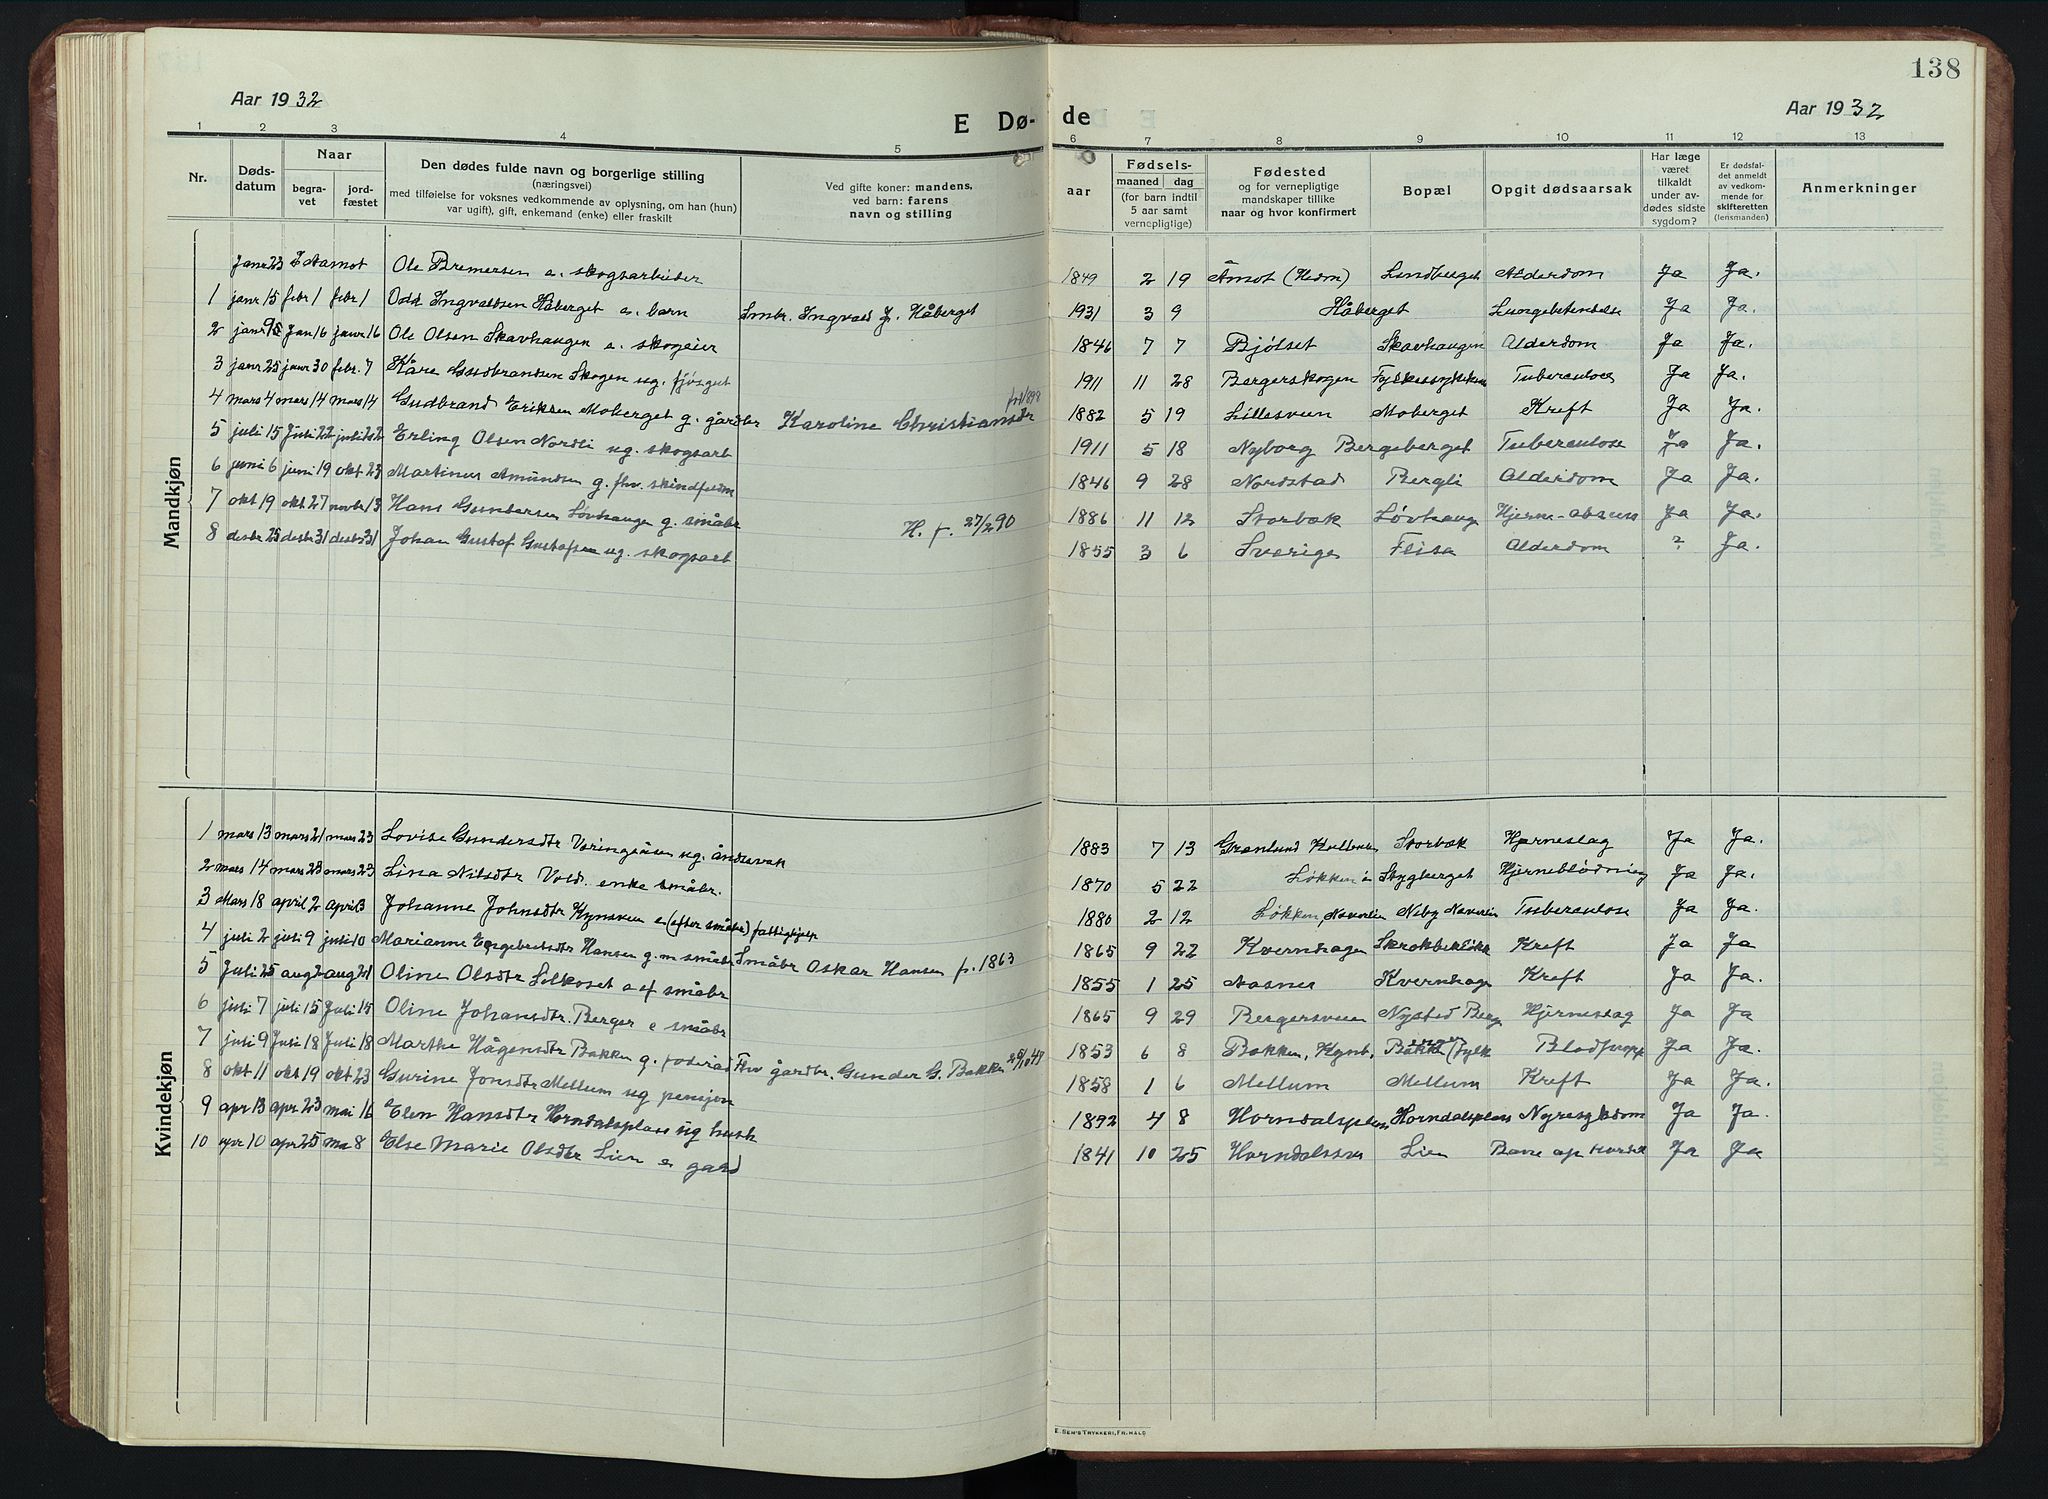 138
Aar 1932
Aar 1932
E Dø-
de
1 2 3 4 5 6 7 8 9 10 11 12 13
Nr.
Døds-
datum
Naar
begra-
vet
jord-
fæstet
Den dødes fulde navn og borgerlige stilling
(næringsvei)
med tilføielse for voksnes vedkommende av oplysning, om han (hun)
var ugift), gift, enkemand (enke) eller fraskilt
Ved gifte koner: mandens,
ved barn: farens
navn og stilling
aar
Fødsels-
maaned dag
(for barn indtil
5 aar samt
vernepligtige)
Fødested
og for vernepligtige
mandskaper tillike
naar og hvor konfirmert
Bopæl
Opgit dødsaarsak
Har læge
været
tilkaldt
under av-
dødes sidste
sygdom?
Er dødsfal-
det anmeldt
av vedkom-
mende for
skifteretten
(lensmanden)
Anmerkninger
Mandkjøn
Janr 23 I Aamot Ole Bremersen e. skogsarbeider 1849 2 19 Åmot (Hedm) Lundberget Alderdom Ja Ja.
1 janr 15 febr 1 febr 1 Odd Ingvaldsen Håberget e. barn Smbr. Ingvald J. Håberget 1931 3 9 Håberget Lungebetendelse Ja Ja.
2 janr Jan 16 janr 16 Ole Olsen Skavhaugen e. skogeier 1846 7 7 Bjølset Skavhaugen Alderdom Ja Ja.
3 janr 25 janr 30 febr. 7 Kåre Gudbrandsen Skogen ug. fjøsgut 1911 11 28 Bergerskogen Tuberculoes Ja Ja.
4 mars 4 mars 14 mars 14 Gudbrand Eriksen Moberget g. gårdbr Karoline Christiansdr 1882 5 19 Lillesveen Moberget Kreft Ja Ja.
5 juli 15 Juli 22 juli 22 Erling Olsen Nordli ug. skogsarb 1911 5 18 Nyborg Bergeberget Tuberculose Ja Ja.
6 juni 6 juni 19 okt 23 Martinus Amundsen g. fhv. 1846 9 28 Nordstad Bergli Alderdom Ja Ja.
7 okt 19 okt 27 novbr 13 Hans Gundersen Løvhaugen g. småbr H. f. 27/2 90 1886 11 12 Storbæk Løvhaug Hjerne-abscess Ja Ja.
8 desbr 25 desbr 31 desbr 31 Johan Gustaf Gustafsen ug. skogsarb 1855 3 6 Sverige Flisa Alderdom ? Ja.
Kvindekjøn
1 mars 13 mars 21 mars 23 Lovise Gundersdtr Væringsåsen ug. åndsvak 1883 7 13 Grønlund Storbæk Hjerneslag Ja Ja.
2 mars 14 mars 23 mars 23 Lina Nilsdtr Vold. enke småbr. 1870 5 22 Løkken Stygberget Hjerneblødning Ja Ja.
3 Mars 18 april 2 april 3 Johanne Johnsdtr Kynsveen e (efter småbr) fattighjelp 1880 2 12 Løkken, Naverlien Neby Naverlin Tuberculose Ja Ja.
4 juli 2 juli 9 juli 10 Marianne Engebretsdtr Hansen g. m småbr Småbr Oskar Hansen f. 1863 1865 9 22 Kvernhagen Kreft Ja Ja
5 Juli 25 aug 2 aug 21 Oline Olsdtr Silkoset e ef småbr 1855 1 25 Aasnes Kvernhage Kreft Ja Ja.
6 juli 7 juli 15 Juli 15 Oline Johansdtr. Berger e småbr 1865 9 29 Bergersveen Nysted Berg Hjerneslag Ja Ja
7 juli 9 Juli 18 Juli 18 Marthe Hågensdtr Bakken g. føderåd Fhv gårdbr. Gunder G. Bakken 1853 6 8 Bakken, Kynb. Bakken (Fylk Blodpropp Ja Ja.
8 okt 11 okt 19 okt 23 Gurine Jonsdtr Mellum ug pensjon 1858 1 6 Mellum Mellum Kreft Ja Ja.
9 apr 13 apr 23 mai 16 Elen Hansdtr Horndalsplass ug hush 1892 4 8 Horndalsplass Horndalsplass Nyresykdom Ja Ja.
10 apr 10 apr 25 ma 8 Else Marie Olsdtr Lien e gard 1841 10 25 Lien Ja Ja
E. SEM'S TRYKKERI, FR.HALD